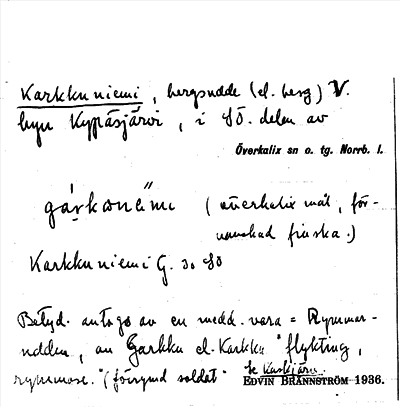 Karkkuniemi, bergsudde (el. berg) V.
byn Kypäsjärvi, i SÖ. delen av
Överkalix sn o. tg. Norrb. l.
(överkalix mål, för-
svenskad finska.)
Karkkuniemi G. 30 SÖ
Betyd. antages av en medd. vara = Rymmar-
udden, av Garkku el. Karkku "flykting,
rymmare." (förrymd soldat"
EDVIN BRÄNNSTRÖM 1936.